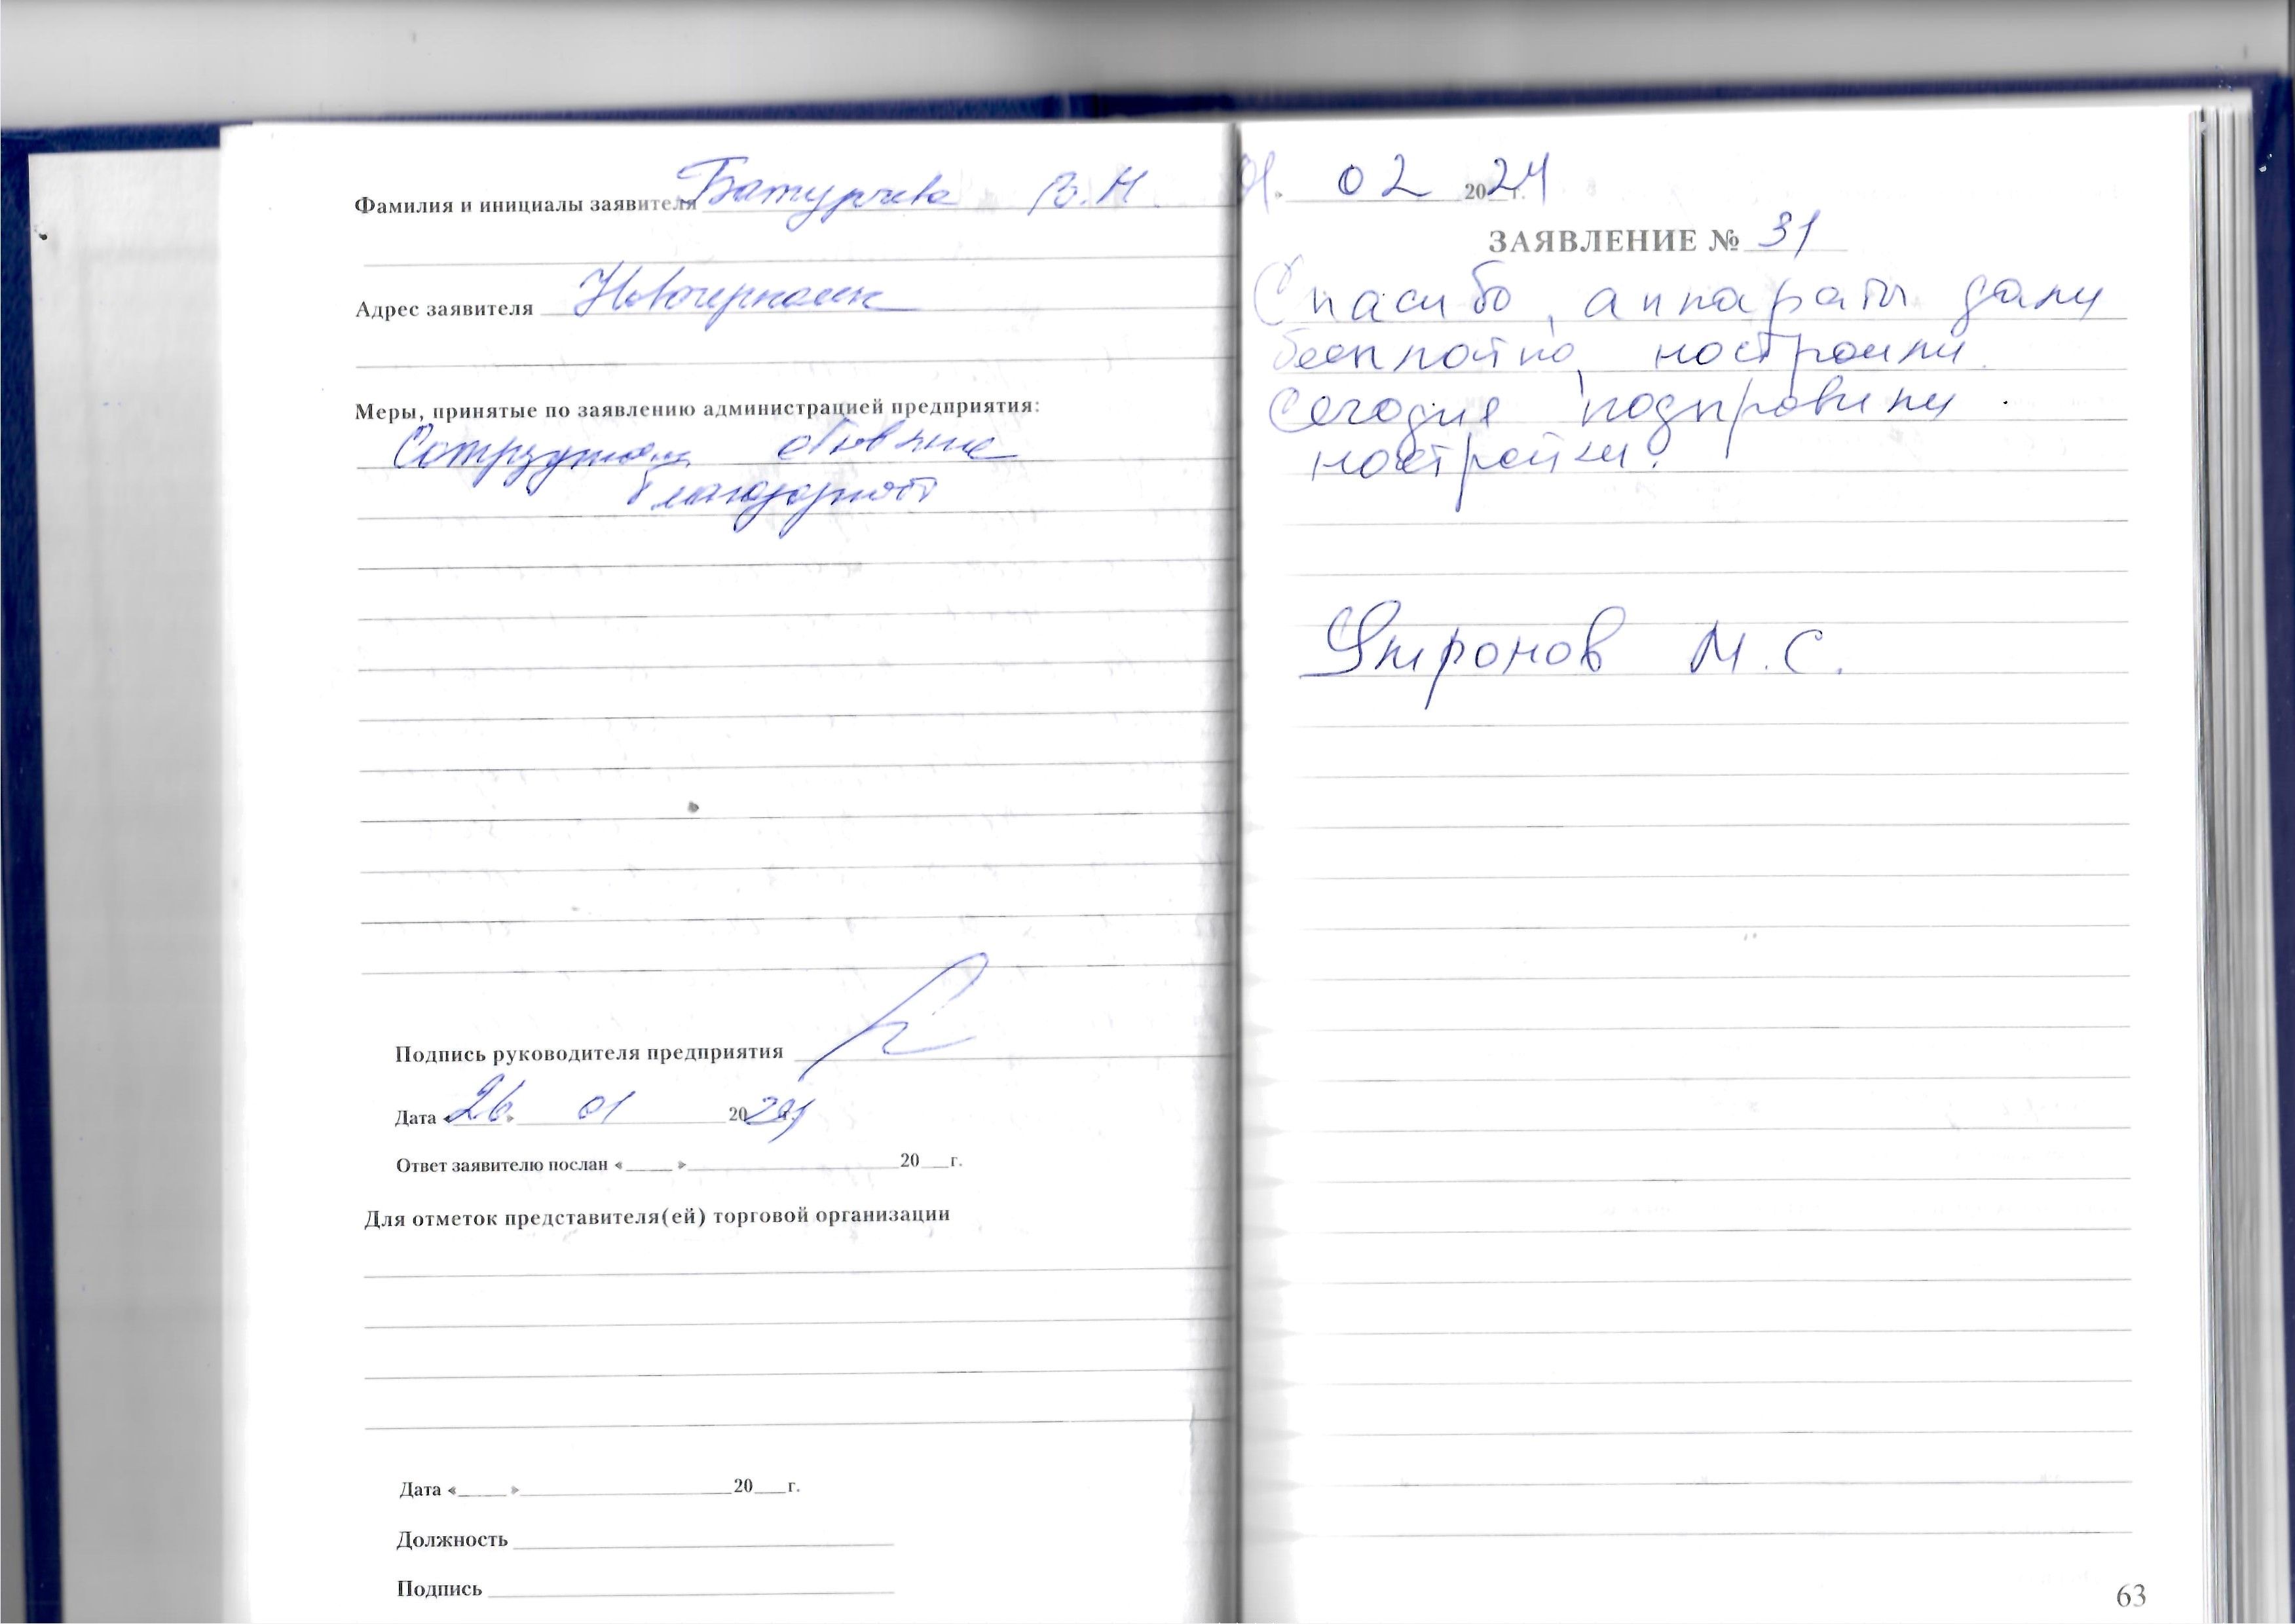 Фамилия и инициалы заявителя В.Н.
Адрес заявителя Новочеркасск
Меры, принятые по заявлению администрацией предприятия:
Сотруднику объявлена
благодарность
Подпись руководителя предприятия
Дата «26» 01 2024
Ответ заявителю послан «____» 20__г.
Для отметок представителя(ей) торговой организации
Дата «____» 20__г.
Должность
Подпись
02 2024г.
ЗАЯВЛЕНИЕ № 31
Спасибо, аппараты дали
бесплатно, настроили.
Сегодня подправили
настройки.
М.С.
63